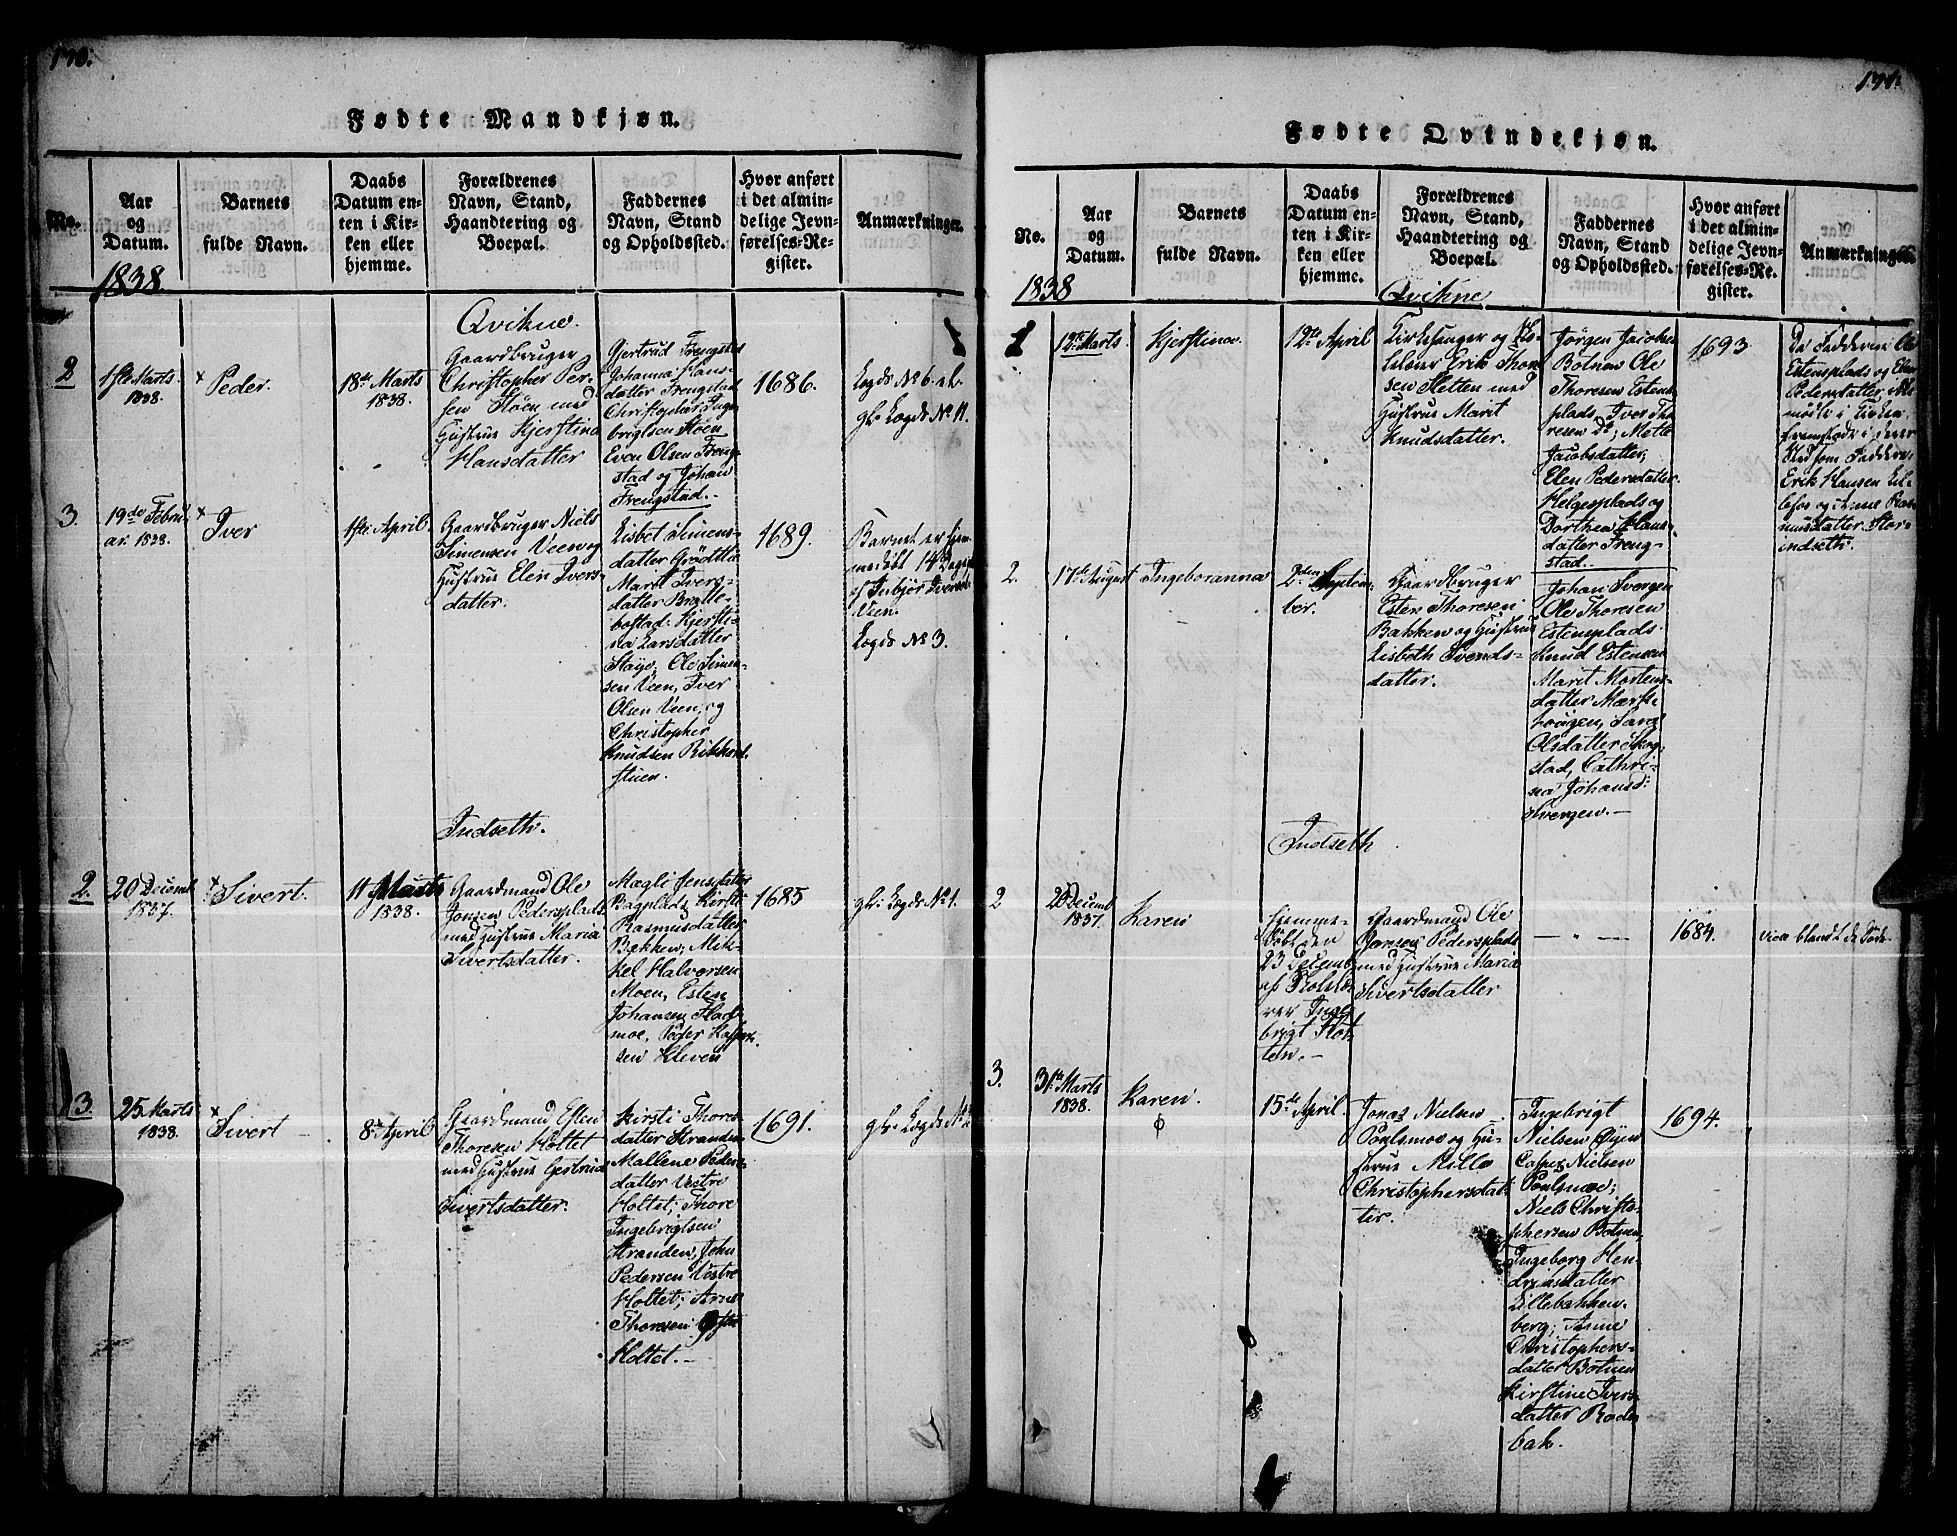 170.
Fødte Mandkjøn.
No.
Aar
og
Datum.
Barnets
fulde Navn.
Daabs
Datum en-
ten i Kir-
ken eller
hjemme.
Forældrenes
Navn, Stand,
Haandtering og
Boepæl.
Faddernes
Navn, Stand
og Opholdssted.
Hvor anført
i det almin-
delige Jevn-
førelses-Re-
gister.
Anmærkninger.
1838
Qvikne.
2
1ste Marts
1838.
Peder.
18de Marts
1838.
Gaardbruger
Christopher Per-
sen Støen med
Hustrue Kjerstina
Hansdatter
Gjertrud Frengstad
Johanna Hans-
datter Frengstad
Christopher Inge-
brigtsen Støen
Even Olsen Freng-
stad og Johan
Frengstad.
1686.
Lægds No 6.
gl. Lægds No 11.
3.
19de Febru-
ar. 1838.
Iver
1ste April.
Gaardbruger Niels
Simensen Veen og
Hustrue Elen Ivers-
datter.
Lisbet Simens-
datter Grødtlie
Marit Ivers-
datter
Kjersti-
na Larsdatter
Ole Simen-
sen Veen, Iver
Olsen Veen, og
Christopher
Knudsen
stuen.
1689.
Barnet er hjem-
medøbt
Veen.
Lægds No 3.
Indseth.
2.
20 Decemb.
1837.
Sivert.
11 Marts
1838.
Gaardmand Ole
Jonsen Pedersplads
med Hustrue Maria
Sivertsdatter.
Magli Jensdatter
Bagplads, Kirsti
Rasmusdatter
Bækken, Mik-
kel Halvorsen
Moen, Esten
Johansen Flad-
moe, Peder
sen Kleven
1685
gl. Lægds No 1.
3.
25 Marts
1838.
Sivert
8de April
Gaardmand Esten
Thoresen Holtet
med Hustrue Gertrud
Sivertsdatter.
Kirsti Thores-
datter Stranden
Mallene Peders-
datter Vestre
Holtet; Thore
Ingebrigtsen
Stranden, John
Pedersen Vestre
Holtet; Arne
Thoresen
Holtet.
1691.
gl. Lægds No
171.
Fødte Qvindekjøn.
No.
Aar
og
Datum.
Barnets
fulde Navn.
Daabs
Datum en-
ten i Kir-
ken eller
hjemme.
Forældrenes
Navn, Stand,
Haandtering og
Boepæl.
Faddernes
Navn, Stand
og Opholdssted.
Hvor anført
i det almin-
delige Jevn-
førelses-Re-
gister.
Anmærkninger.
1838
Qvikne
1
12te Marts
Kjerstina.
12te April
Kirkesanger og
Erik Thor-
sen Sletten med
Hustrue Marit
Knudsdatter.
Jørgen Jacobsen
Botnen Ole
Thoresen Estens-
plads, Iver Tho-
resen do; Mette
Jacobsdatter,
Elen Pedersdatter
Helgesplads og
Dorthea Hans-
datter Freng-
stad.
1693
Da Fadderne Ole
Estensplads og Elen
Pedersdatter, ikke
mødte i Kirken,
fremstode i deres
Sted som Faddere
Erik Hansen Lil-
lefos og
musdatter Stor-
indseth.
2.
17de August
Ingeboranna
2den Septem-
ber.
Gaardbruger
Esten Thoresen
Bakken og Hustrue
Lisbeth Svends-
datter.
Johan Svergen
Ole Thoresen
Estensplads
Knud Estensen
Marit Mortens-
datter
Olsdatter Skog-
stad, Cathri-
na Johansd:
Svergen.
Indseth
2
20 Decemb
1837.
Karen
hjemme-
døbt den
23 Decemb.
af Skolelæ-
rer Inge-
brigt Slet-
ten.
Gaardmand Ole
Jonsen Pedersplads
med Hustrue Maria
Sivertsdatter
— " —
1684.
vice blandt de Døde.
3.
31te Marts
1838.
Karen.
15de April.
Jonas Nielsen
Poulsmoe og Hu-
strue Mille
Christophersdat-
ter.
Ingebrigt
Nielsen Øyen
Casper Nielsen
Poulsmoe;
Niels Christo-
phersen Botnen,
Ingeborg Hen-
driksdatter
Lillebakken-
berg; Anne
Christophers-
datter Botnen
Kirstine Ivers-
datter
bak.
1694.